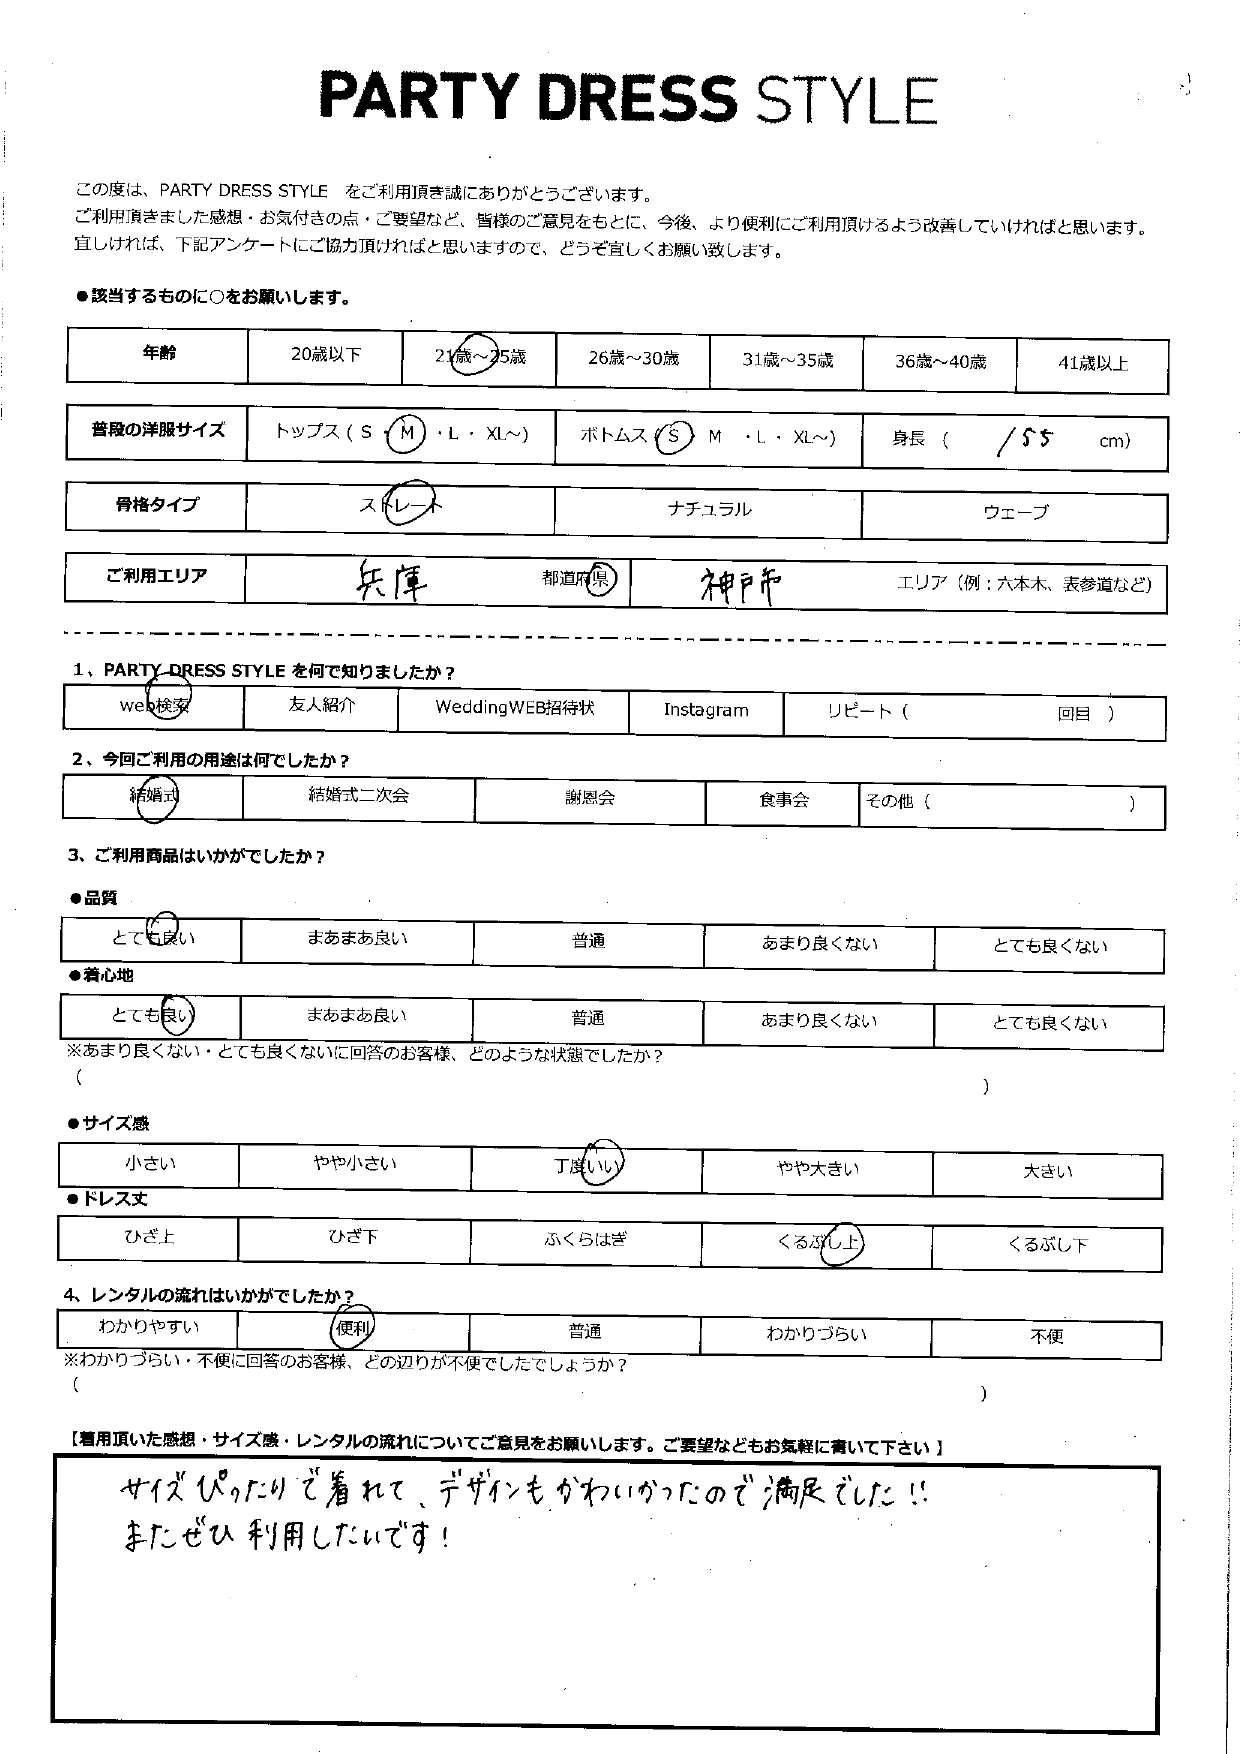 PARTY DRESS STYLE
この度は、PARTY DRESS STYLE をご利用頂き誠にありがとうございます。
ご利用頂きました感想・お気付きの点・ご要望など、皆様のご意見をもとに、今後、より便利にご利用頂けるよう改善していければと思います。
宜しければ、下記アンケートにご協力頂ければと思いますので、どうぞ宜しくお願い致します。
●該当するものに○をお願いします。
年齢 20歳以下 21歳～25歳 26歳～30歳 31歳～35歳 36歳～40歳 41歳以上
普段の洋服サイズ トップス ( S ・ M ・L ・ XL～) ボトムス ( S M ・L ・ XL～) 身長 ( 155 cm)
骨格タイプ ストレート ナチュラル ウェーブ
ご利用エリア 兵庫 都道府県 神戸市 エリア（例：六本木、表参道など）
1、PARTY DRESS STYLE を何で知りましたか？
web検索 友人紹介 WeddingWEB招待状 Instagram リピート ( 回目 )
2、今回ご利用の用途は何でしたか？
結婚式 結婚式二次会 謝恩会 食事会 その他 ( )
3、ご利用商品はいかがでしたか？
●品質
とても良い まあまあ良い 普通 あまり良くない とても良くない
●着心地
とても良い まあまあ良い 普通 あまり良くない とても良くない
※あまり良くない・とても良くないに回答のお客様、どのような状態でしたか？
( )
●サイズ感
小さい やや小さい 丁度いい やや大きい 大きい
●ドレス丈
ひざ上 ひざ下 ふくらはぎ くるぶし上 くるぶし下
4、レンタルの流れはいかがでしたか？
わかりやすい 便利 普通 わかりづらい 不便
※わかりづらい・不便に回答のお客様、どの辺りが不便でしたでしょうか？
( )
【着用頂いた感想・サイズ感・レンタルの流れについてご意見をお願いします。ご要望などもお気軽に書いて下さい】
サイズぴったりで着れて、デザインもかわいかったので満足でした!!
またぜひ利用したいです！